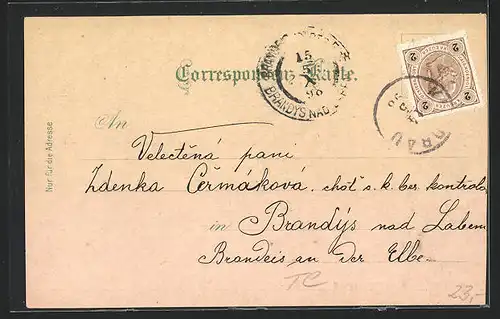 Correspondenz-Karte.
15
98
BRANDÝS NAD
2 2
2 2
An
Nur für die Adresse
Velectěná paní
Zdenka Čeřmáková, choť s. k. ber. kontrola
in Brandýs nad Labem
Brandeis an der Elbe
TC
23,-